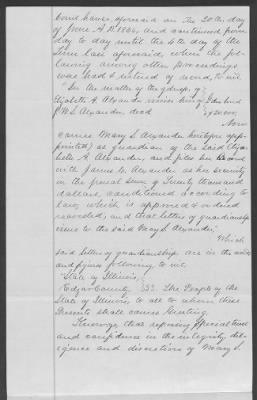 Court house aforesaid on the 20th day
of June A.D. 1864, and continued from
day to day until the 4th day of the
term last aforesaid, when the fol-
lowing among other proceedings
was had & entered of record, to wit
"In the matter of the gdnship of
Elizabeth A. Alexander minor heir of
J W S Alexander decd
Now
comes Mary S. Alexander heretofore appo-
inted as guardian of the said Eliza-
beth A. Alexander, and files her bond
with James W. Alexander as her security
in the penal sum of Twenty thousand
dollars, conditioned according to
law, which is approved & ordered
recorded, and that letters of guardianship
issue to the said Mary S. Alexander.
Which
said letters of guardianship are in the words
and figures following to wit
State of Illinois,
Edgar County SS. The People of the
State of Illinois, to all to whom these
Presents shall come Greeting.
Know ye, that reposing special trust
and confidence in the integrity, dil-
igence and discretion of Mary S.